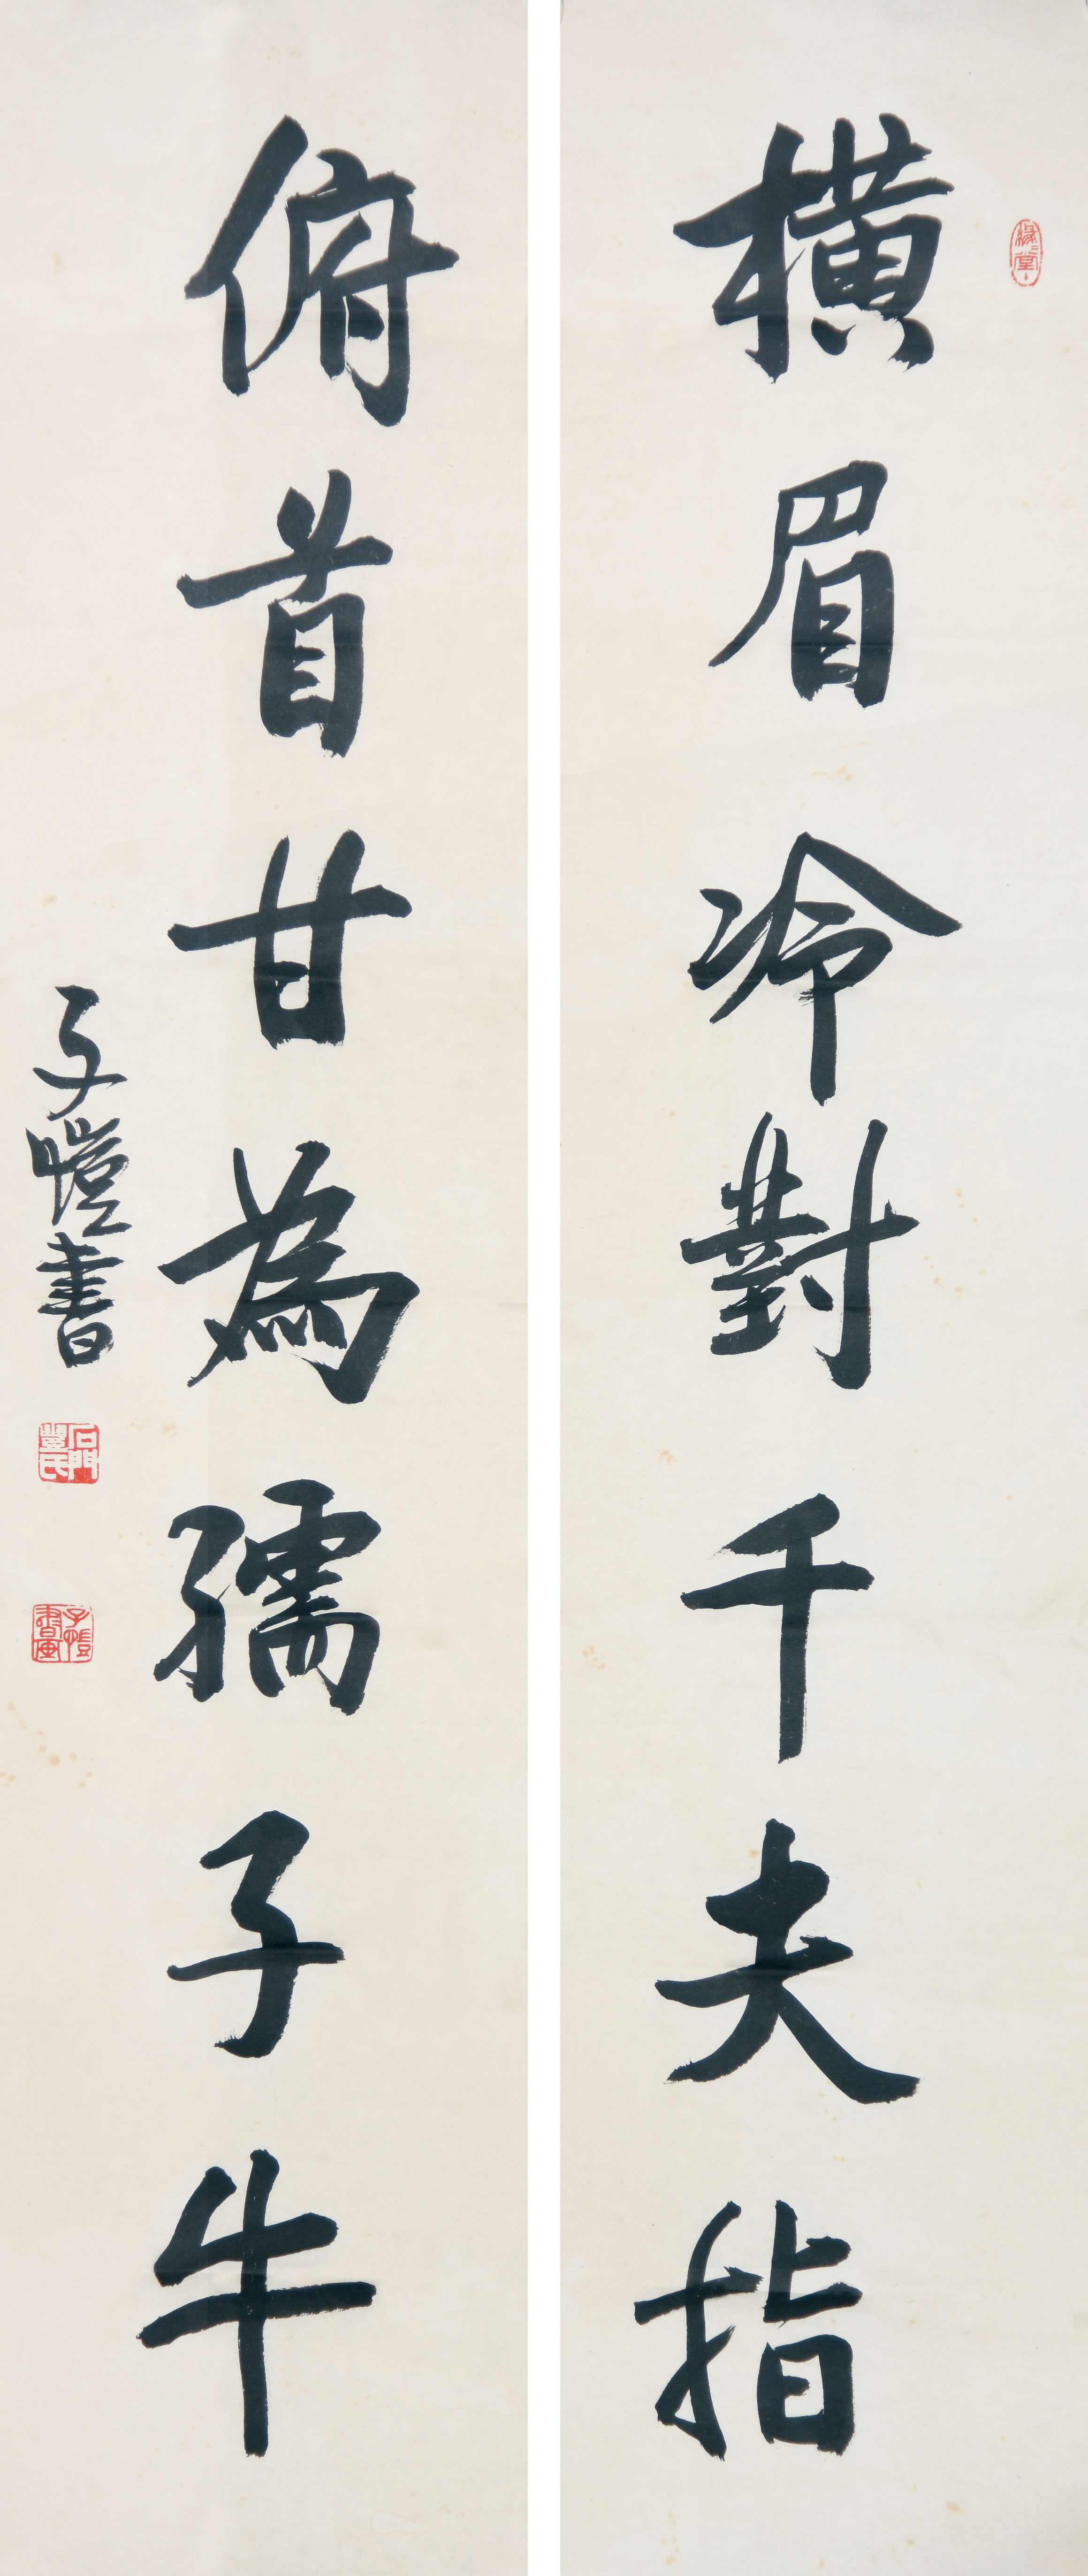 橫眉冷對千夫指
俯首甘為孺子牛
子愷書
緣緣堂
石門豐氏
子愷書畫